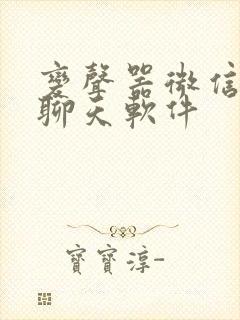 變聲器微信
聊天軟件
寶寶淳-